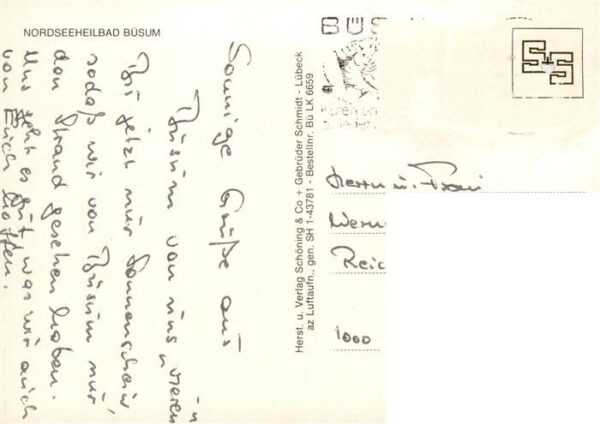 NORDSEEHEILBAD BÜSUM
Sonnige Grüße aus
Büsum von uns vieren
Bis jetzt nur Sonnenschein,
sodaß wir von Büsum nur
den Strand gesehen haben.
Uns geht es gut was wir auch
von Euch hoffen.
Herst. u. Verlag Schöning & Co + Gebrüder Schmidt - Lübeck
az Luftaufn., gen. SH 1-43781 - Bestellnr. Bü LK 6659
BÜS
Herrn u. Frau
Wern
Reic
1000